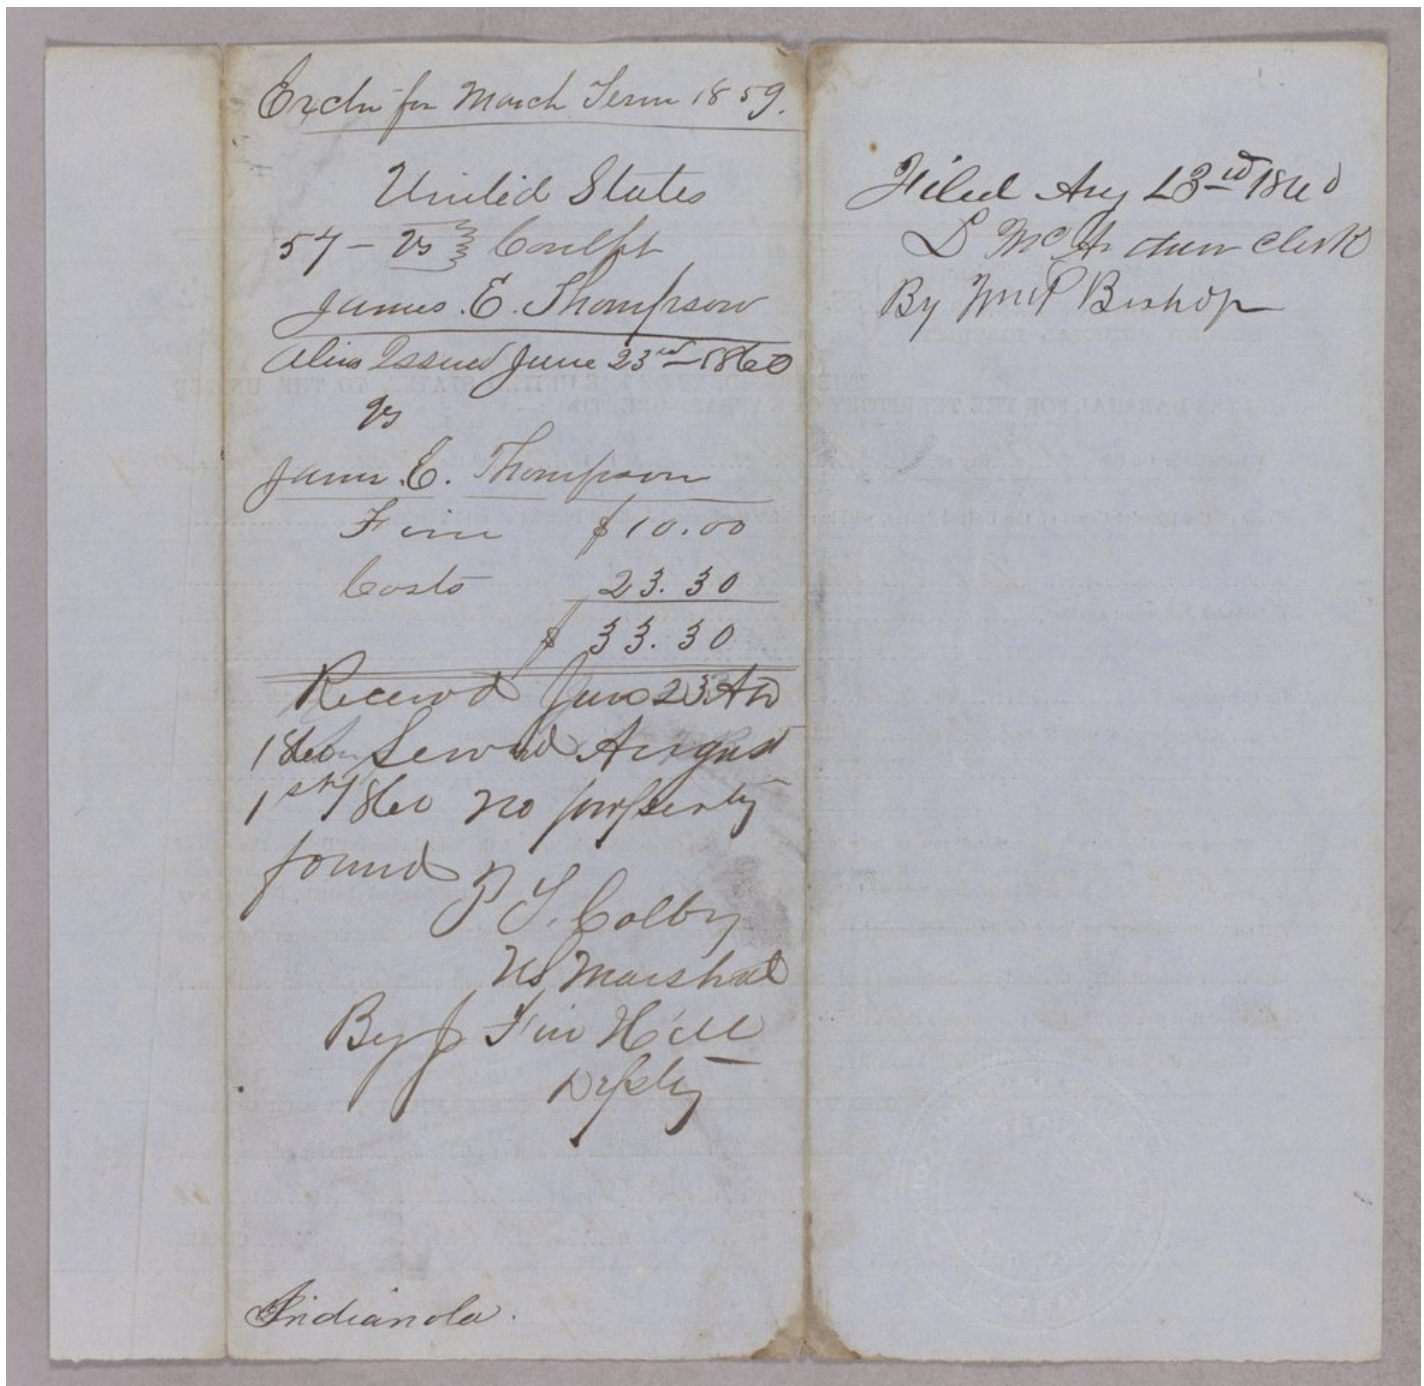 Exctn for March Term 1859.
United States
57 - vs Contpt
James. E. Thompson
Alias Issued June 23rd - 1860
vs
James. E. Thompson
Fine $10.00
Costs 23.30
$ 33.30
Received June 23 AD
1860 Served August
1st 1860 no property
found
P. T. Colby
US Marshal
By J Fin Hill
Depty
Indianola.
Filed Aug 23rd 1860
L McArthur Clerk
By Wm P Bishop
STATES MARSHAL FOR THE TERRITORY OF KANSAS, GREETING: